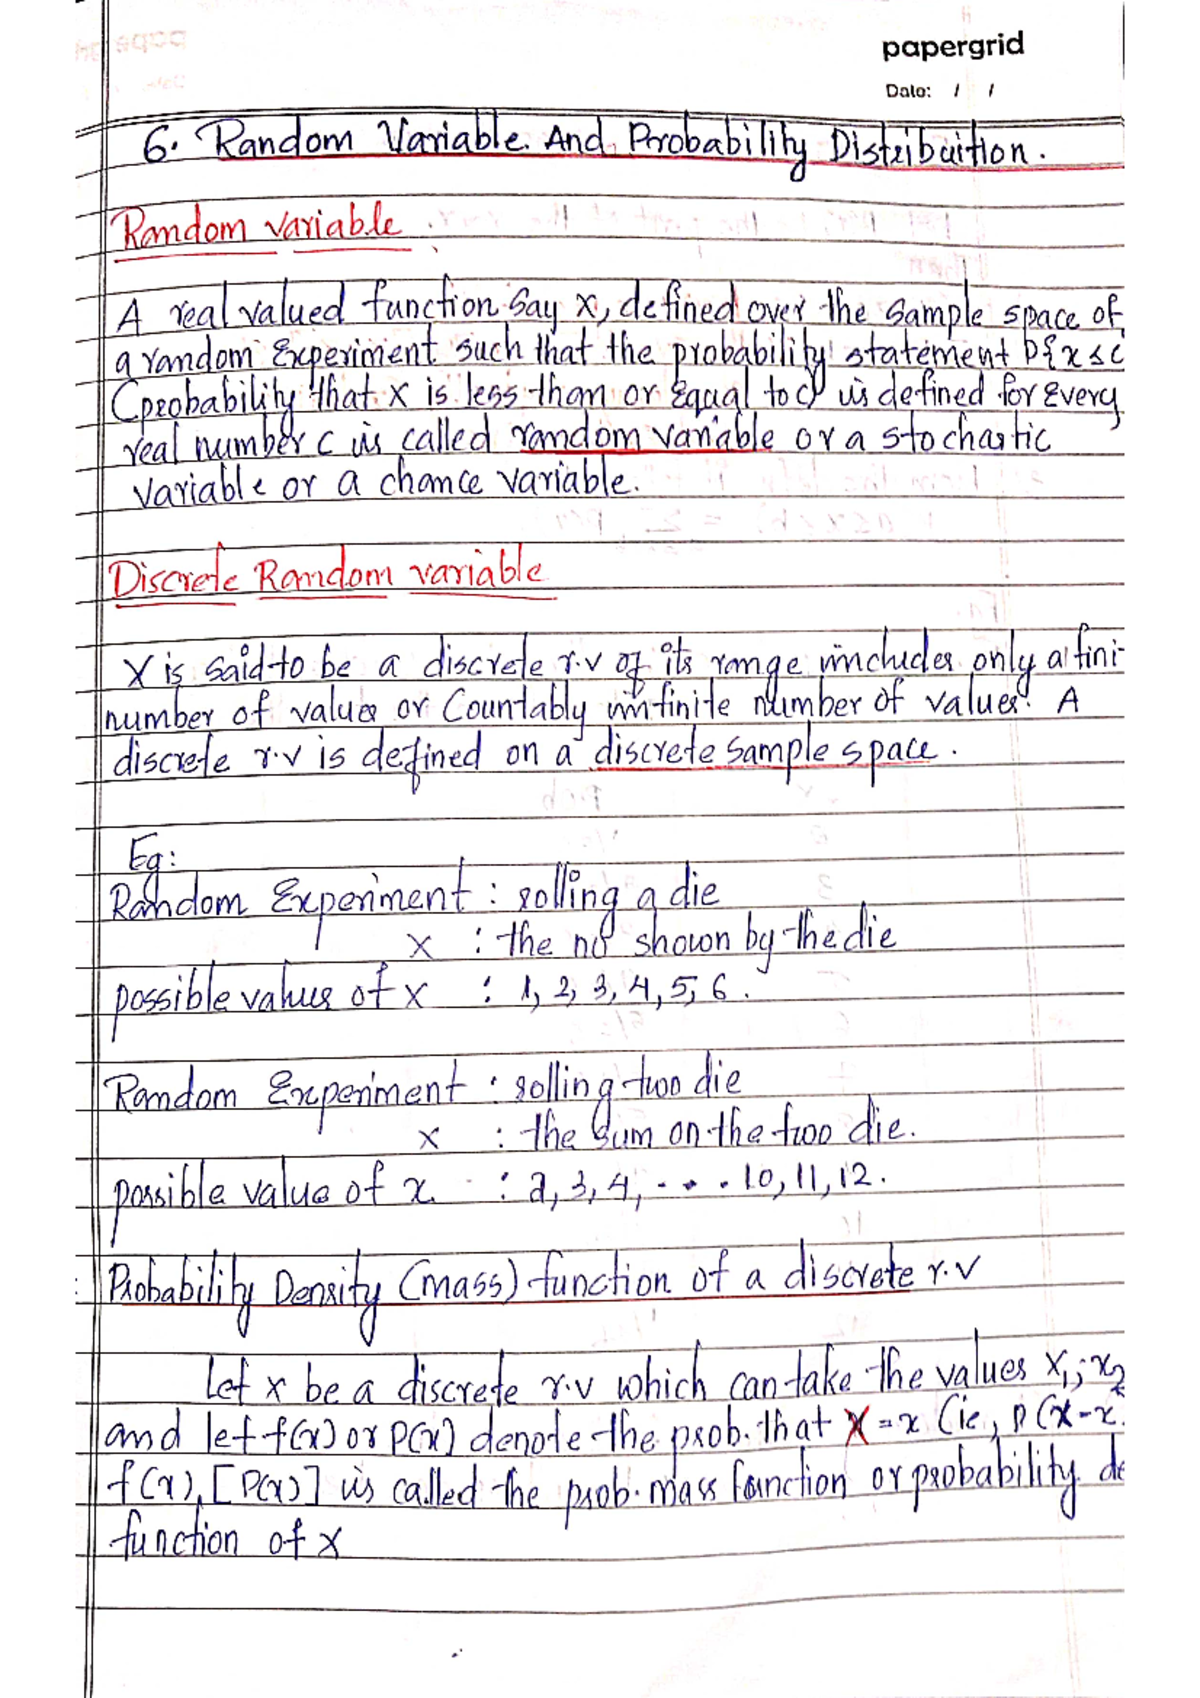 papergrid
Date: / /
6. Random Variable And Probability Distribuition.
Random variable
A real valued function say x, defined over the sample space of
a random Experiment such that the probability statement P{x≤c
(probability that x is less than or Equal to c) is defined for Every
real number c is called random variable or a stochastic
variable or a chance variable.
Discrete Random variable
X is said to be a discrete r.v if its range includes only a fini-
number of values or Countably infinite number of values. A
discrete r.v is defined on a discrete sample space.
Eg:
Random Experiment : rolling a die
x : the no shown by the die
possible values of x : 1, 2, 3, 4, 5, 6.
Random Experiment : rolling two die
x : the sum on the two die.
possible value of x : 2, 3, 4, . . . 10, 11, 12.
Probability Density (mass) function of a discrete r.v
Let x be a discrete r.v which can take the values x₁, x₂
and let f(x) or P(x) denote the prob. that X = x (ie, P(X=x
f(x), [P(x)] is called the prob. mass function or probability de
function of x